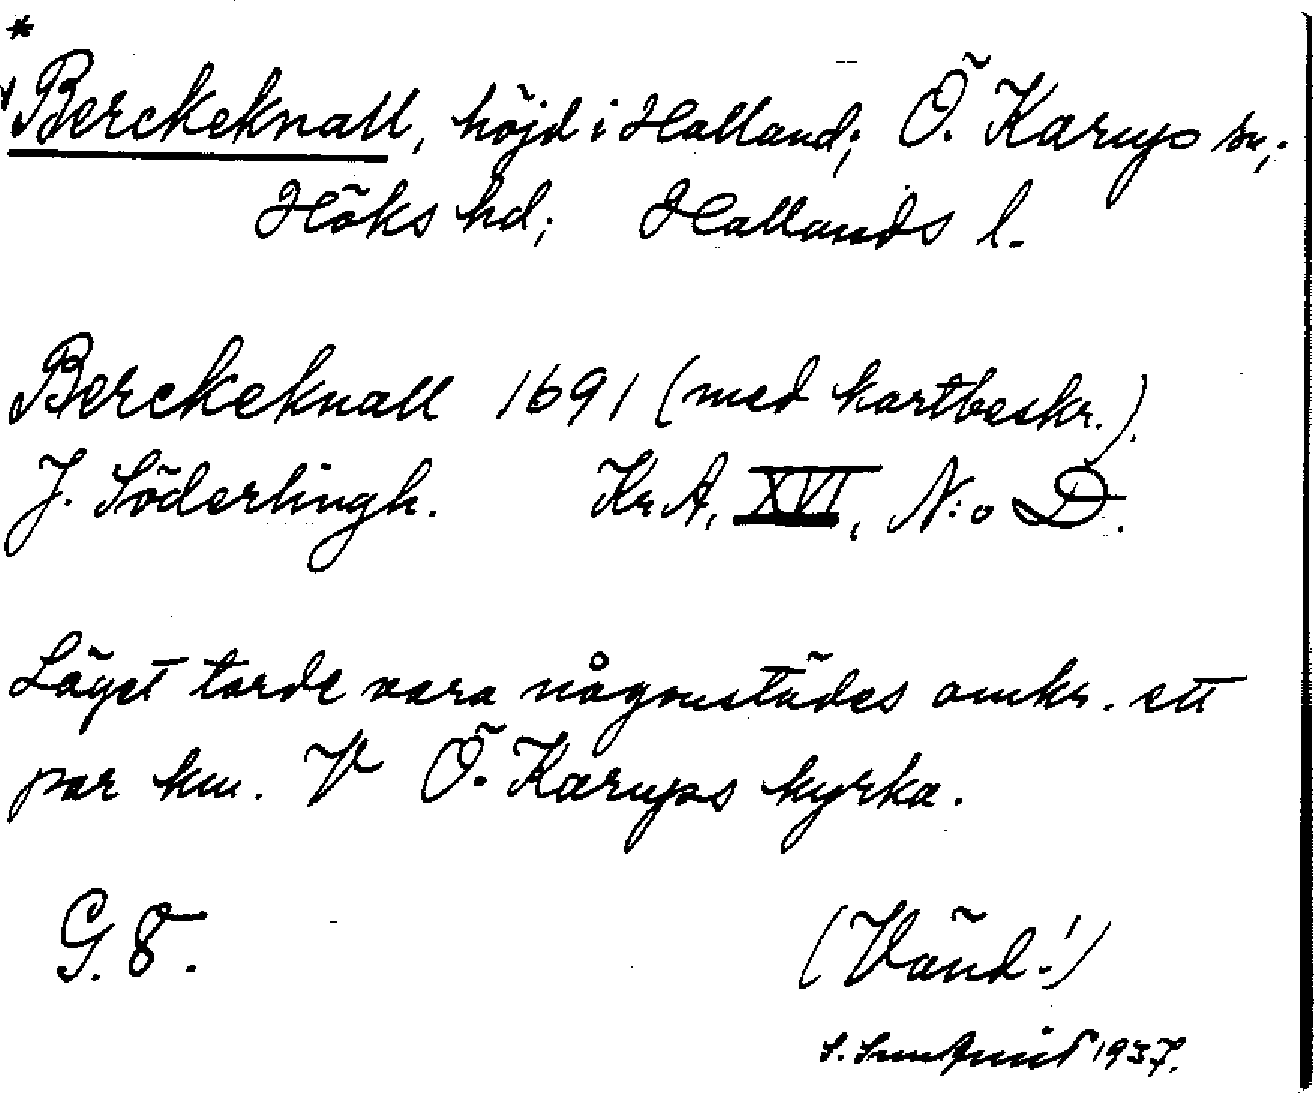 *
Berckeknall, höjd i Halland; Ö. Karups sn,;
Höks hd; Hallands l.
Berckeknall 1691 (med kartbeskr.).
J. Söderlingh. Kr A, XVI, N:o D.
Läget torde vara någonstädes omkr. ett
par km. V Ö. Karups kyrka.
G. 8.
(Vänd!)
S. 1937.